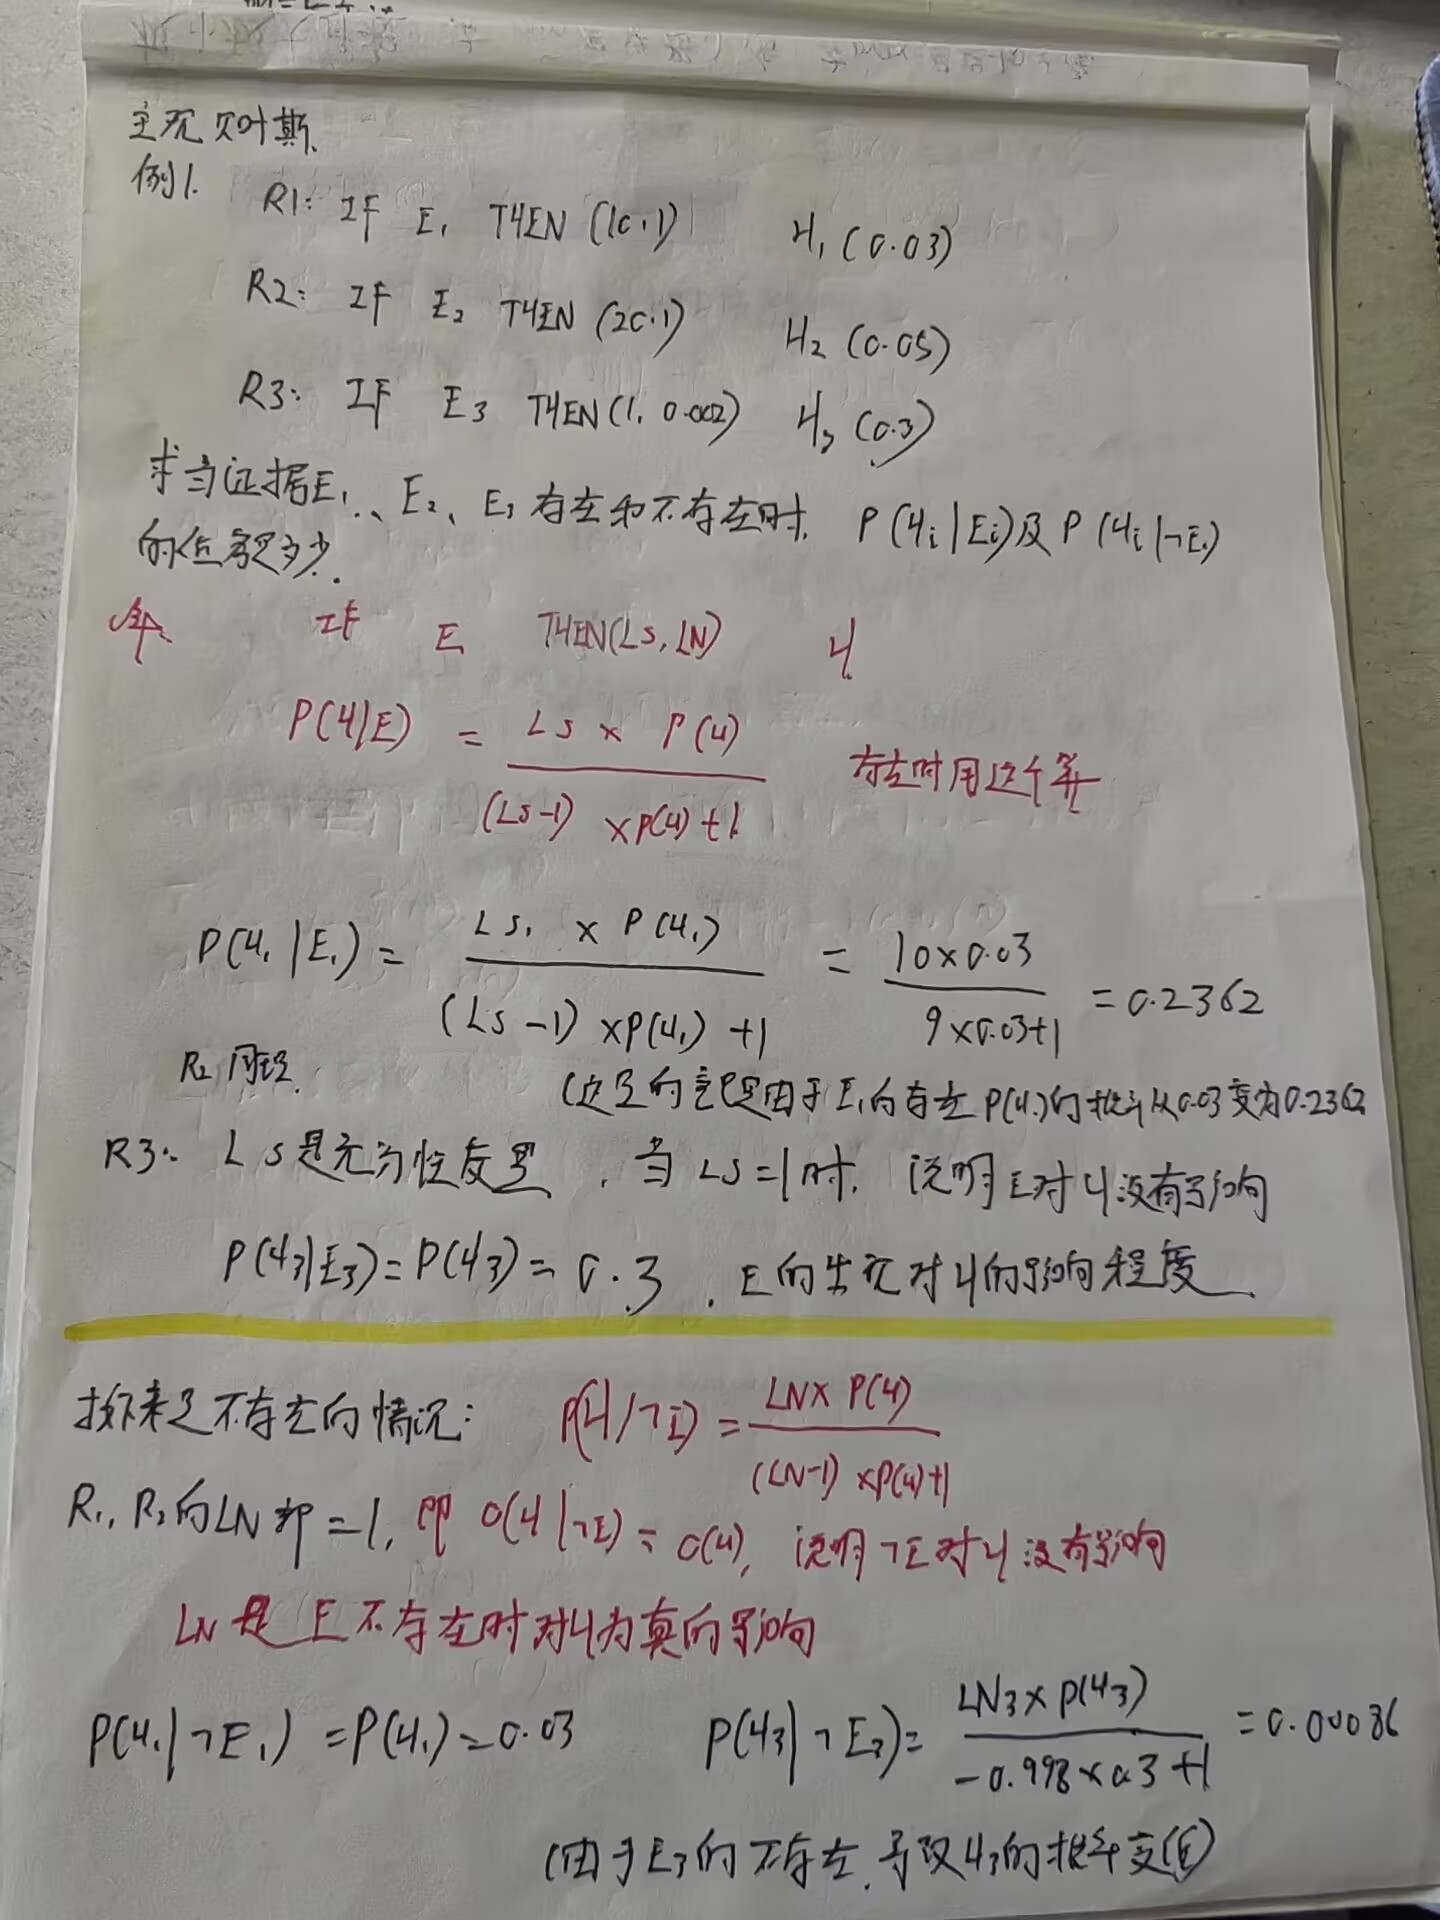 主观贝叶斯
例1. R1: IF E₁ THEN (10, 1) H₁ (0.03)
R2: IF E₂ THEN (20, 1) H₂ (0.05)
R3: IF E3 THEN (1, 0.002) H₃ (0.3)
求当证据E₁、E₂、E₃存在和不存在时, P(Hᵢ|Eᵢ)及P(Hᵢ|¬Eᵢ)
的值是多少.
IF E THEN(LS, LN) H
P(H|E) = LS × P(H) / ((LS-1) × P(H) + 1) 存在时用这个算
P(H₁|E₁) = LS₁ × P(H₁) / ((LS-1) × P(H₁) + 1) = 10×0.03 / (9×0.03+1) = 0.2362
R₂ 同理.
(这里的意思是由于E₁的存在 P(H₁)的概率从0.03变为0.2362
R3: LS是充分性度量, 当LS=1时, 说明E对H没有影响
P(H3|E3) = P(H3) = 0.3. E的出现对H的影响程度.
接下来是不存在的情况: P(H|¬E) = LN × P(H) / ((LN-1) × P(H)+1)
R₁, R₂的LN都=1, 即 O(H|¬E) = O(H), 说明¬E对H没有影响
LN是E不存在时对H为真的影响
P(H₁|¬E₁) = P(H₁) = 0.03 P(H3|¬E3) = LN3 × P(H3) / (-0.998×0.3+1) = 0.00086
(由于E3的不存在, 导致H3的概率变低)